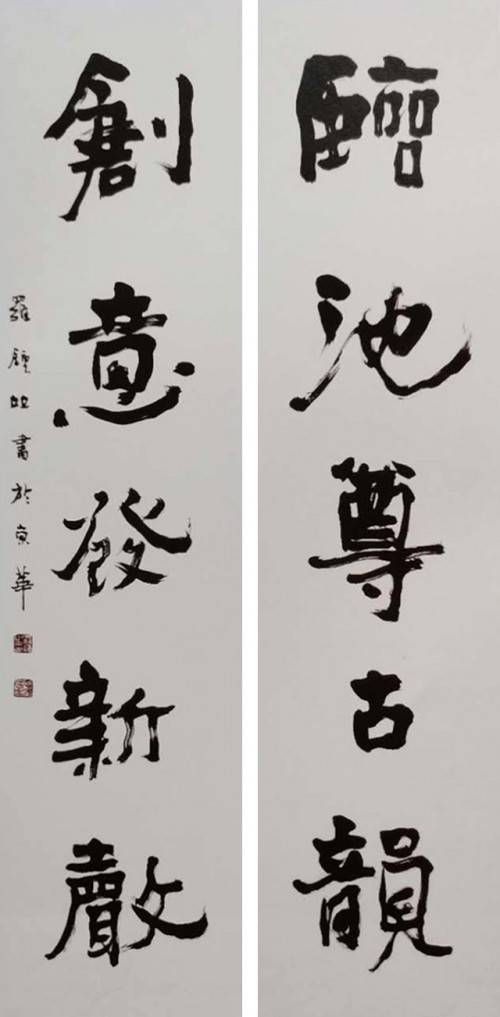 臨池尊古韻
創意發新聲
羅鍾書於京華